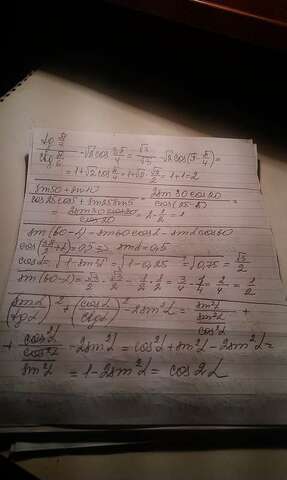 tg π/3 / ctg π/6 - √2 cos 3π/4 = √3/√3 - √2 cos(π - π/4) =
= 1 + √2 cos π/4 = 1 + √2 · √2/2 = 1 + 1 = 2
sin50 + sin10 / cos25 cos5 + sin25 sin5 = 2sin30 cos20 / cos(25-5) =
= 2sin30 cos20 / cos20 = 2 · 1/2 = 1
sin(60-α) = sin60 cosα - sinα cos60
sinα = 0,5
cosα = √1 - sin²α = √1 - 0,25 = √0,75 = √3/2
sin(60-α) = √3/2 · √3/2 - 1/2 · 1/2 = 3/4 - 1/4 = 2/4 = 1/2
(sinα / tgα)² + (cosα / ctgα)² - 2sin²α = sin²α / sin²α / cos²α +
+ cos²α / cos²α / sin²α - 2sin²α = cos²α + sin²α - 2sin²α =
= 1 - 2sin²α = cos2α